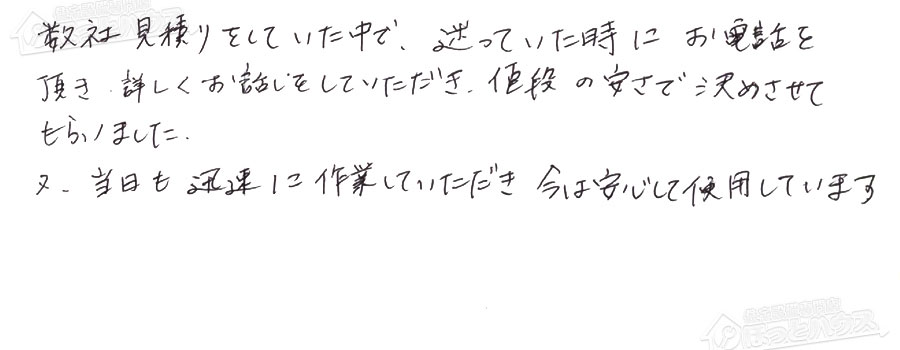 数社見積りをしていた中で、迷っていた時にお電話を
頂き、詳しくお話しをしていただき、値段の安さで決めさせて
もらいました。
又、当日も迅速に作業していただき今は安心して使用しています
ほっとハウス